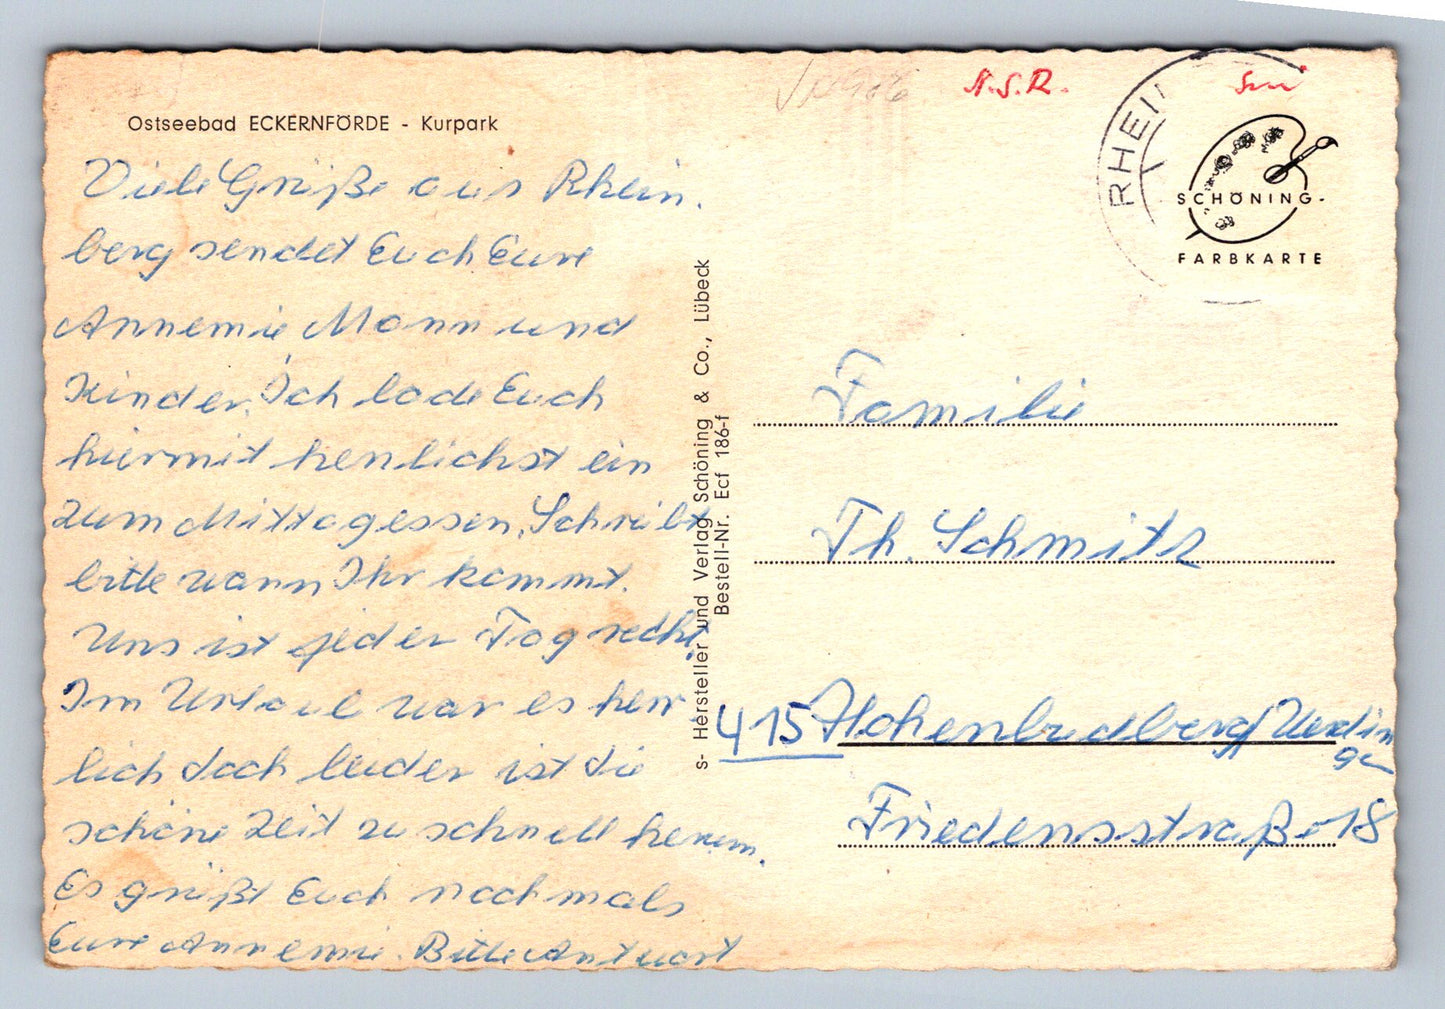 Ostseebad ECKERNFÖRDE - Kurpark
Viele Grüße aus Rhein.
berg sendet Euch Eure
Annemie Mann und
Kinder. Ich lade Euch
hiermit herzlichst ein
zum Mittagessen. Schreibt
bitte wann Ihr kommt.
Uns ist jeder Tag recht.
Im Urlaub war es herr
lich doch leider ist die
schöne Zeit zu schnell herum.
Es grüßt Euch nochmals
Eure Annemie. Bitte Antwort
s- Hersteller und Verlag Schöning & Co., Lübeck
Bestell-Nr. Ecf 186-f
N.S.R.
RHEI
SCHÖNING-
FARBKARTE
Familie
Th. Schmitz
415 Hohenbudberg/Uerdin
gen
Friedensstraße 18